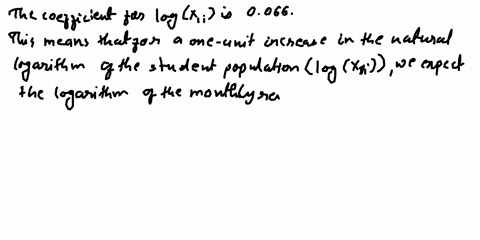 The coefficient for log(x₁ᵢ) is 0.066.
This means that for a one-unit increase in the natural
logarithm of the student population (log(xᵢ)), we expect
the logarithm of the monthly